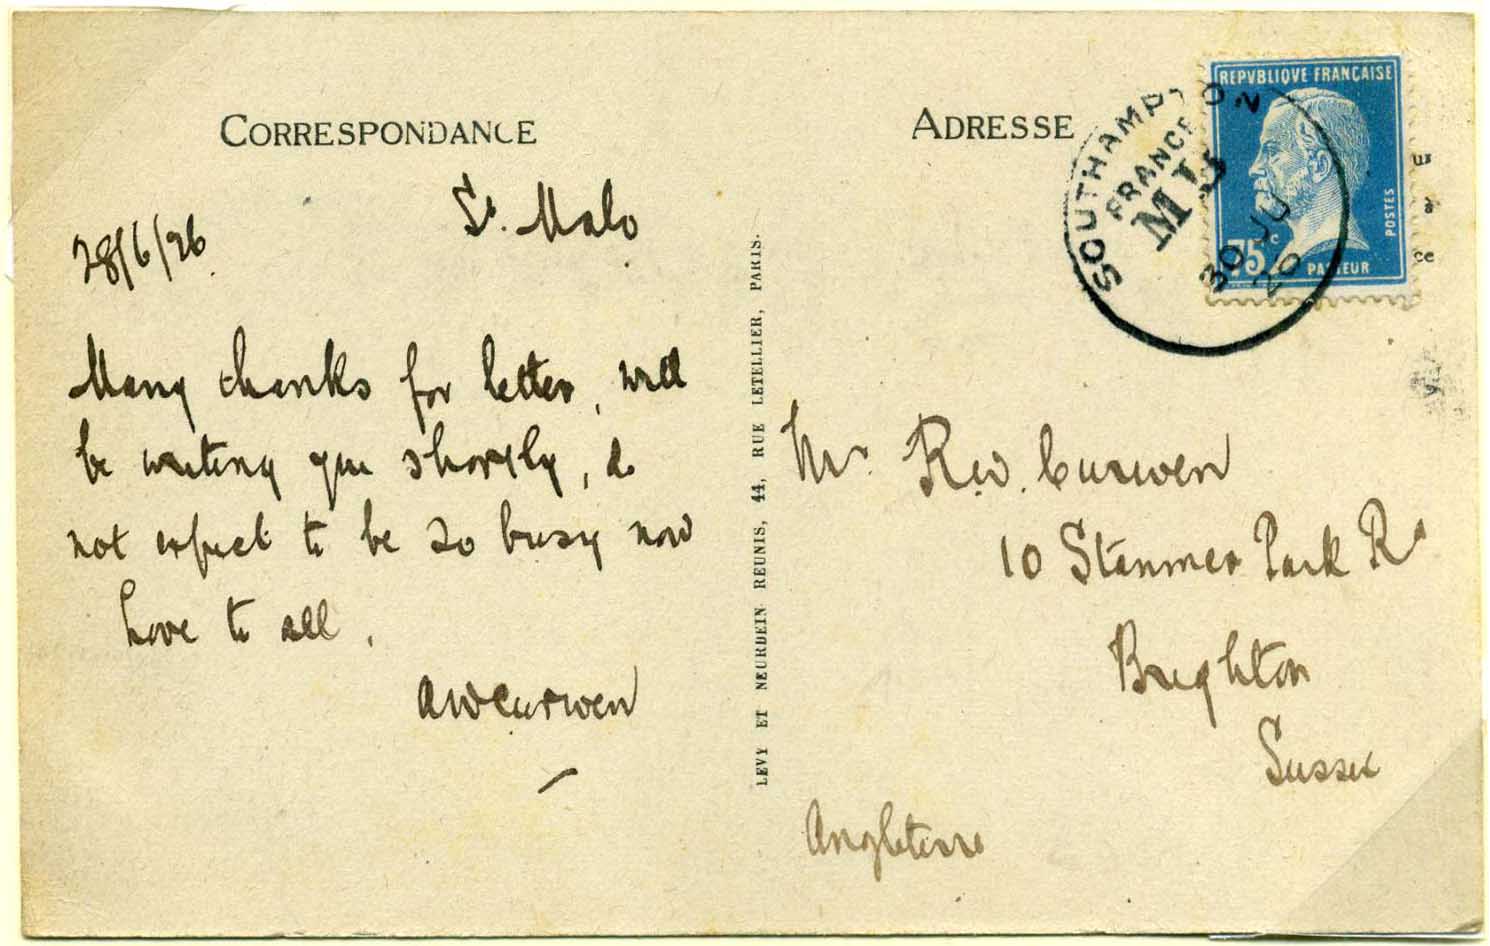 CORRESPONDANCE
St. Malo
28/6/26
Many thanks for letter, will
be writing you shortly, do
not expect to be so busy now
Love to all.
AWCurwen
LEVY ET NEURDEIN REUNIS, 44, RUE LETELLIER, PARIS.
ADRESSE
SOUTHAMPTON
FRANCE
30 JU
REPVBLIQVE FRANÇAISE
POSTES
75c
PASTEUR
Mr. R.W. Curwen
10 Stanmer Park Rd
Brighton
Sussex
Angleterre